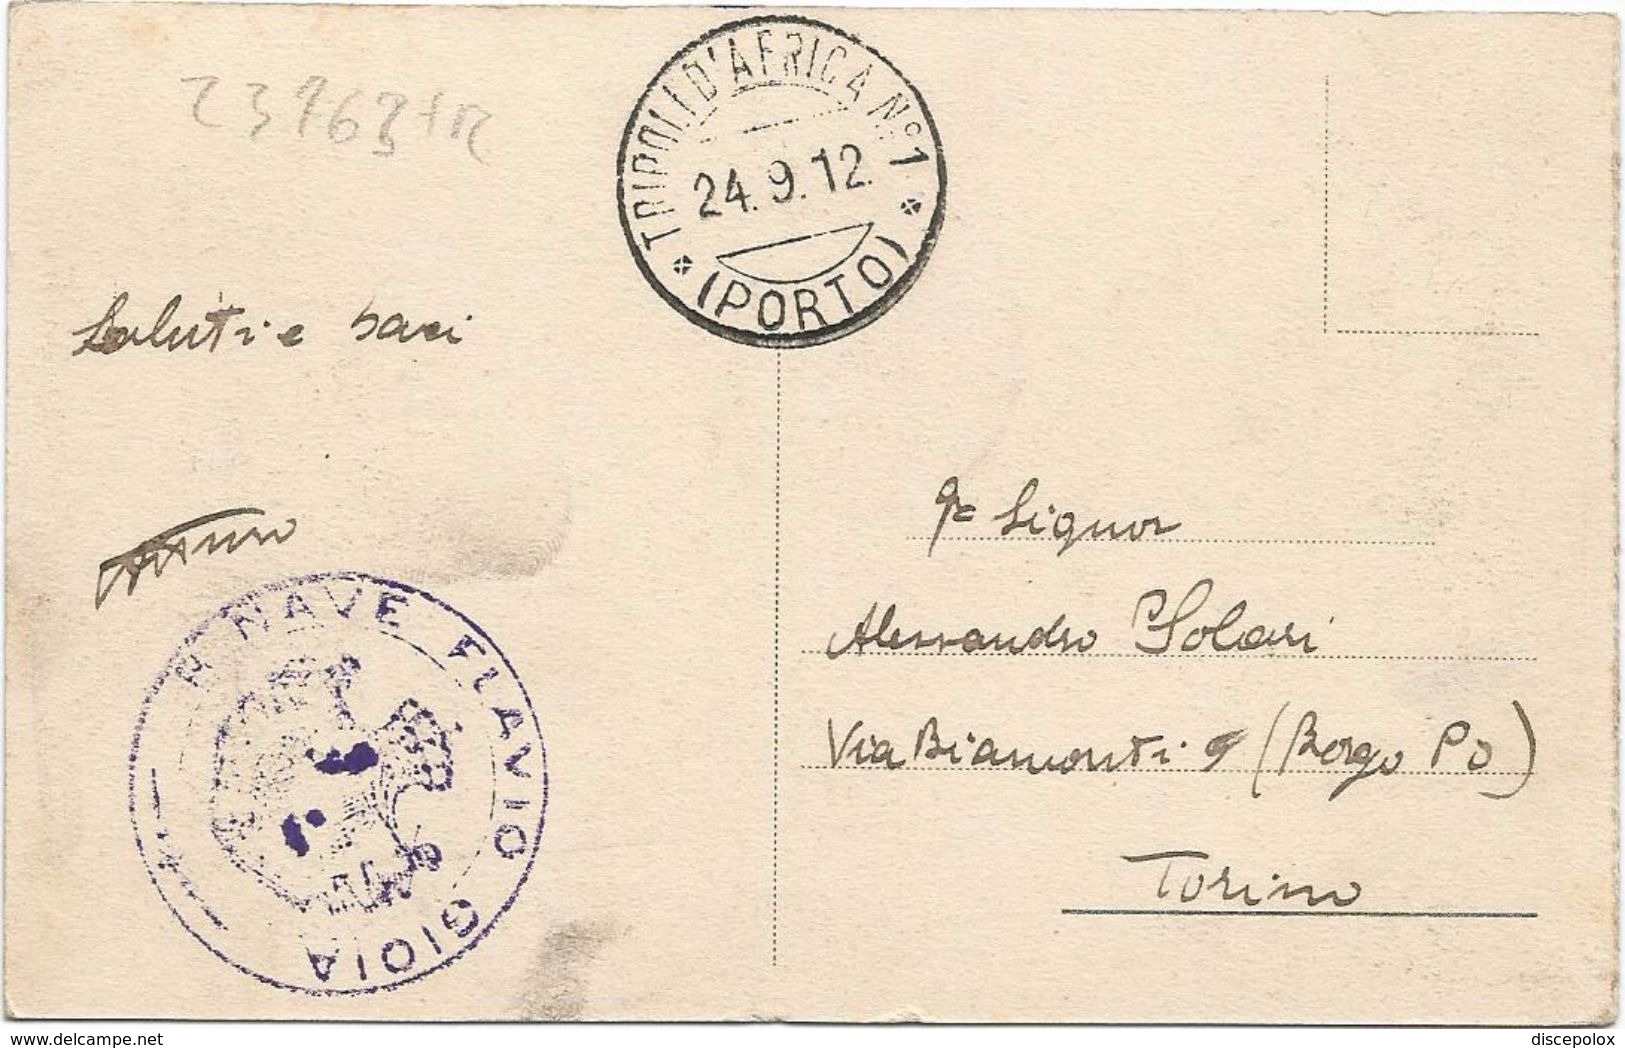 TRIPOLI D'AFRICA N.° 1
24.9.12.
(PORTO)
Saluti e baci
R. NAVE FLAVIO GIOIA
Signor
Alessandro Solari
Via Biamonti 9 (Borgo Po)
Torino
www.delcampe.net
discepolox